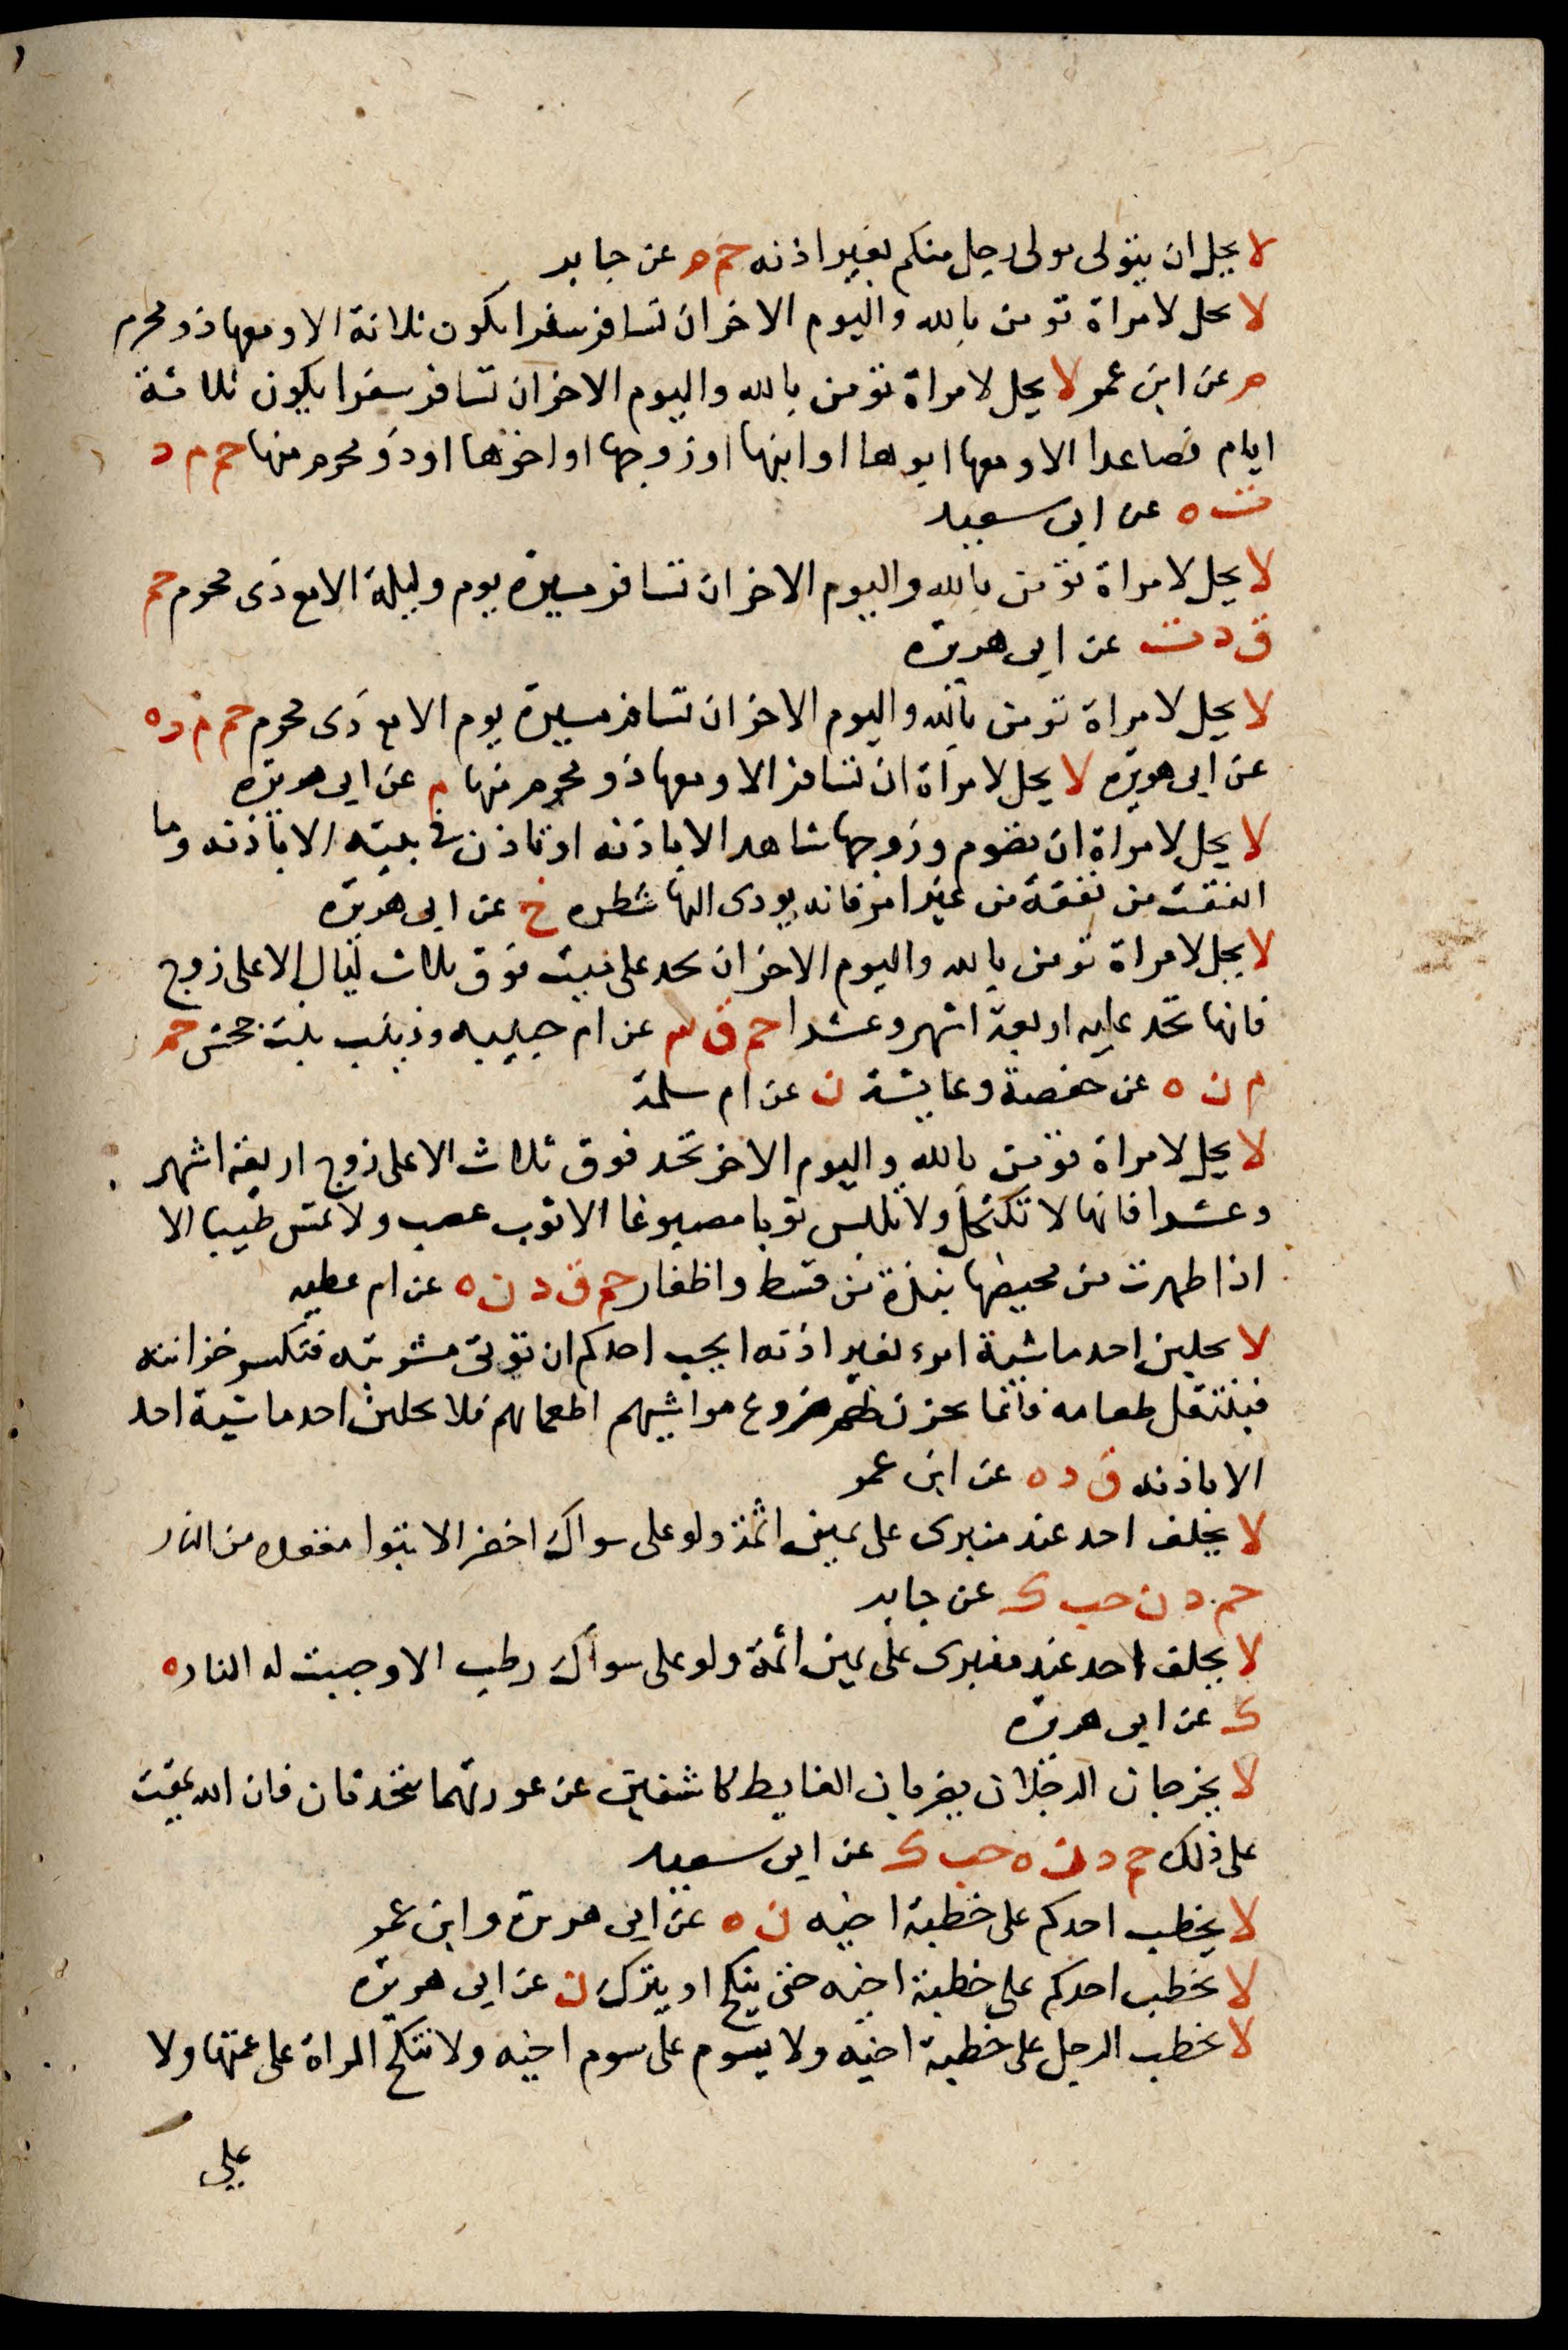 لا يحل ان يتولى مولى رجل منكم بغير اذنه حم م عن جابر
لا يحل لامراة تومن بالله واليوم الاخر ان تسافر سفرا يكون ثلاثة الا ومعها ذو محرم
م عن ابن عمر لا يحل لامراة تومن بالله واليوم الاخر ان تسافر سفرا يكون ثلاثة
ايام فصاعدا الا ومعها ابوها او ابنها او زوجها او اخوها او ذو محرم منها حم م د
ت ه عن ابى سعيد
لا يحل لامراة تؤمن بالله واليوم الاخر ان تسافر مسيرة يوم وليلة الا مع ذى محرم حم
ق د ت عن ابى هريرة
لا يحل لامراة تومن بالله واليوم الاخر ان تسافر مسيرة يوم الا مع ذى محرم حم م د ه
عن ابى هريرة لا يحل لامراة ان تسافر الا ومعها ذو محرم منها م عن ابى هريرة
لا يحل لامراة ان تصوم وزوجها شاهد الا باذنه او تاذن فى بيته الا باذنه وما
انفقت من نفقة من غير امره فانه يودى اليها شطره خ عن ابى هريرة
لا يحل لامراة تومن بالله واليوم الاخر ان تحد على ميت فوق ثلاث ليال الا على زوج
فانها تحد عليه اربعة اشهر وعشرا حم ق عن ام حبيبه وزينب بنت جحش حم
م ن ه عن حفصة وعايشة ن عن ام سلمة
لا يحل لامراة تؤمن بالله واليوم الاخر تحد فوق ثلاث الا على زوج اربعة اشهر
وعشرا فانها لا تكتحل ولا تلبس ثوبا مصبوغا الا ثوب عصب ولا تمس طيبا الا
اذا طهرت من محيضها بنبذة من قسط واظفار حم ق د ن ه عن ام عطيه
لا يحلبن احد ماشية امرء بغير اذنه ايحب احدكم ان توتى مشربته فتكسر خزانته
فينتقل طعامه فانما تخزن لهم ضروع مواشيهم اطعماتهم فلا يحلبن احد ماشية احد
الا باذنه ق د ه عن ابن عمر
لا يحلف احد عند منبرى على يمين اثمة ولو على سواك اخضر الا تبوا مقعده من النار
حم د ن حب ك عن جابر
لا يحلف احد عند منبرى على يمين اثمة ولو على سواك رطب الا وجبت له النار ه
ك عن ابى هريرة
لا يخرجان الرجلان يضربان الغايط كاشفين عن عورتهما يتحدثان فان الله يمقت
على ذلك حم د ن ه حب ك عن ابى سعيد
لا يخطب احدكم على خطبة اخيه ن ه عن ابى هريرة وابن عمر
لا يخطب احدكم على خطبة اخيه حتى ينكح او يترك ن عن ابى هريرة
لا يخطب الرجل على خطبة اخيه ولا يسوم على سوم اخيه ولا تنكح المراة على عمتها ولا
على